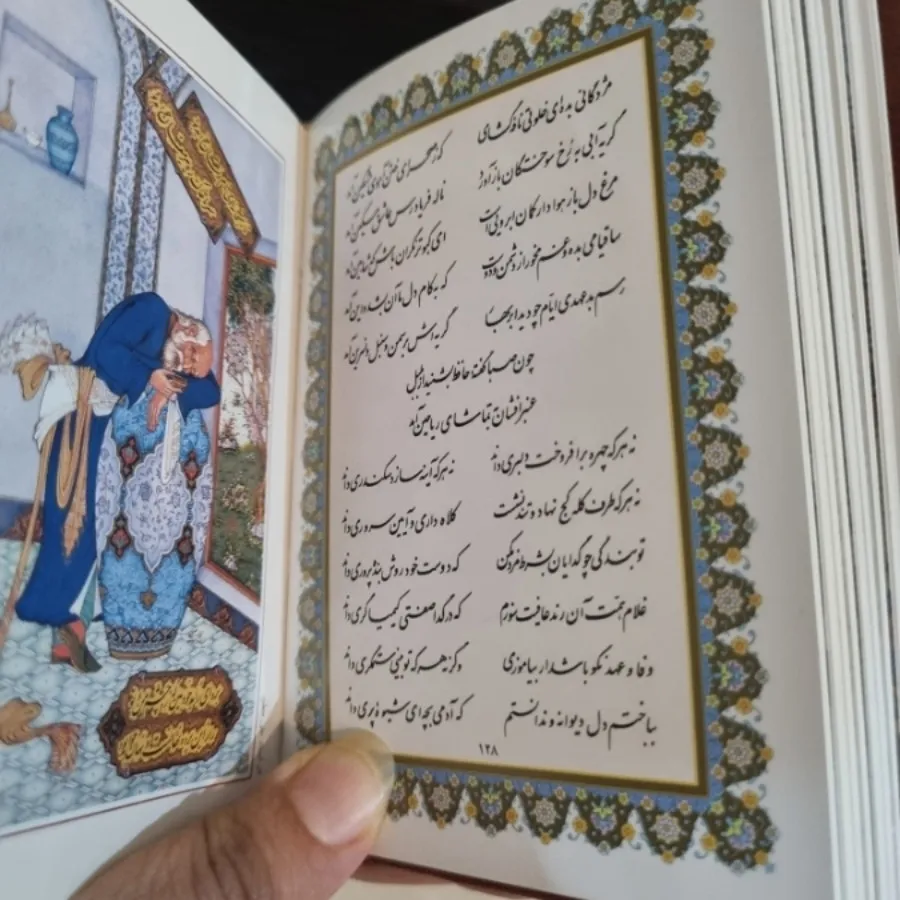 مژدگانی بده ای خلوتی نافه گشای که ز صحرای ختن آهوی مشکین آمد
گریه آبی به رخ سوختگان باز آورد ناله فریادرس عاشق مسکین آمد
مرغ دل باز هوادار کمان ابروئیست ای کبوتر نگران باش که شاهین آمد
ساقیا می بده و غم مخور از دشمن و دوست که به کام دل ما آن بشد و این آمد
رسم بدعهدی ایام چو دید ابر بهار گریه‌اش بر سمن و سنبل و نسرین آمد
چون صبا گفتهٔ حافظ بشنید از بلبل
عنبرافشان بتماشای ریاحین آمد
نه هر که چهره برافروخت دلبری داند نه هر که آینه سازد سکندری داند
نه هر که طرف کله کج نهاد و تند نشست کلاه داری و آیین سروری داند
تو بندگی چو گدایان بشرط مزد مکن که دوست خود روش بنده پروری داند
غلام همت آن رند عافیت سوزم که در گدا صفتی کیمیاگری داند
وفا و عهد نکو باشد ار بیاموزی وگرنه هر که تو بینی ستمگری داند
بباختم دل دیوانه و ندانستم که آدمی بچه‌ای شیوهٔ پری داند
۱۲۸